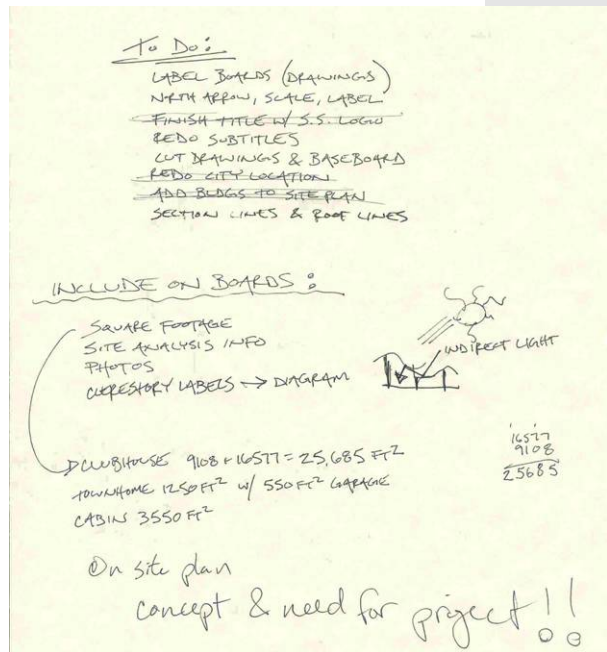 To Do:
LABEL BOARDS (DRAWINGS)
NORTH ARROW, SCALE, LABEL
FINISH TITLE W/ S.S. LOGO
REDO SUBTITLES
CUT DRAWINGS & BASEBOARD
REDO CITY LOCATION
ADD BLDGS TO SITE PLAN
SECTION LINES & ROOF LINES
INCLUDE ON BOARDS:
SQUARE FOOTAGE
SITE ANALYSIS INFO
PHOTOS
CLERESTORY LABELS → DIAGRAM
INDIRECT LIGHT
CLUBHOUSE 9108 + 16577 = 25,685 FT²
TOWNHOME 1250 FT² W/ 550 FT² GARAGE
CABIN 3550 FT²
16577
9108
25685
On site plan
concept & need for project!!